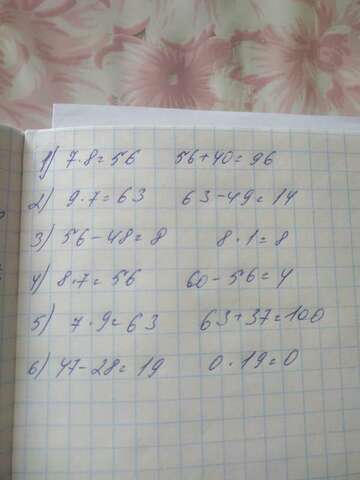 1) 7·8=56 56+40=96
2) 9·7=63 63-49=14
3) 56-48=8 8·1=8
4) 8·7=56 60-56=4
5) 7·9=63 63+37=100
6) 47-28=19 0·19=0